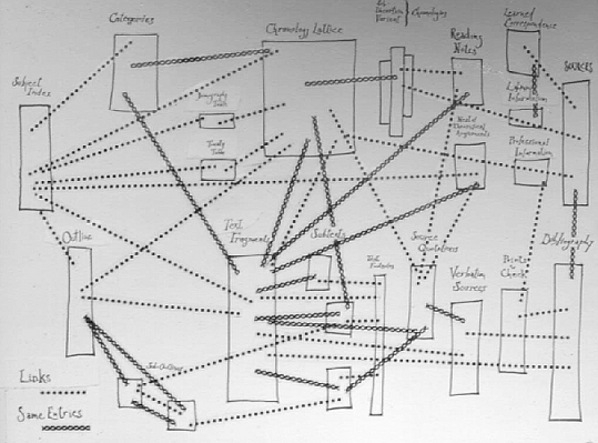 Categories
Chronology Lattice
Variant
} Chronologies
Reading
Notes
Learned
Correspondence
SOURCES
Subject
Index
Information
Professional
Information
Outline
Text
Fragments
Subtexts
Source
Quotations
Verbatim
Sources
Points
to
Check
Bibliography
Links
Same Entries